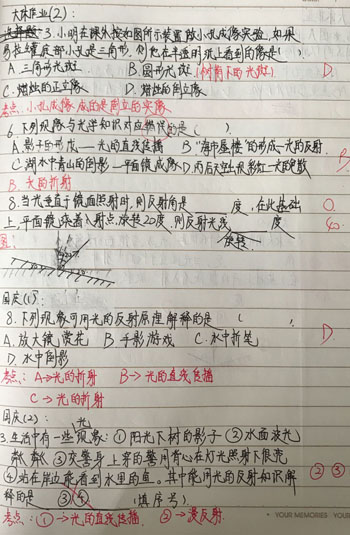 大味作业(2):
3.小明在课外按如图所示装置做小孔成像实验,如果
易拉罐底部小孔是三角形,则他在半透明纸上看到的像是( )
A.三角形光斑 B.圆形光斑(树荫下的光斑) D.
C.蜡烛的正立像 D.蜡烛的倒立像
考点:小孔成像 成的是倒立的实像
6.下列现象与光学知识对应错误的是( ).
A.影子的形成—光的直线传播 B."海市蜃楼"的形成—光的反射.
C.湖水中青山的倒影—平面镜成像 D.雨后天空出现彩虹—光的色散 B
B.光的折射
8.当光垂直于镜面照射时,则反射角是 度,在此基础 0
上,平面镜绕着入射点旋转20度,则反射光线 度 40
旋转
图:
国庆(1):
8.下列现象可用光的反射原理解释的是( ).
A.放大镜赏花 B.手影游戏 C.水中折笔 D.
D.水中倒影
考点:A→光的折射 B→光的直线传播
C→光的折射
国庆(2):
3.生活中有一些光现象:①阳光下树的影子 ②水面波光
粼粼 ③交警身上穿的警用背心在灯光照射下很亮
④站在岸边能看到水里的鱼。其中能用光的反射知识解 ②③
释的是 ③④ (填序号)
考点:①→光的直线传播. ②→波反射.
YOUR MEMORIES YOUR